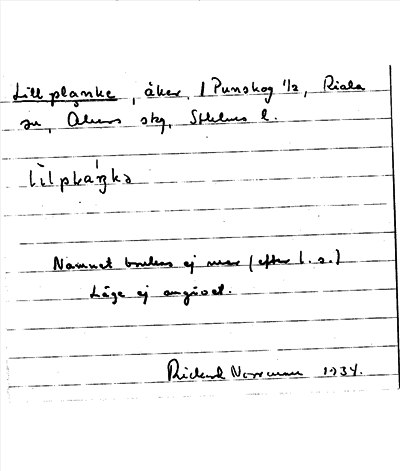 Lill planke, åker, 1 Punskog 1/2, Riala
sn, Åkers skg, Sthlms l.
Namnet brukas ej mer (efter l. s.)
Läge ej angivet.
Rickard Norrman 1934.